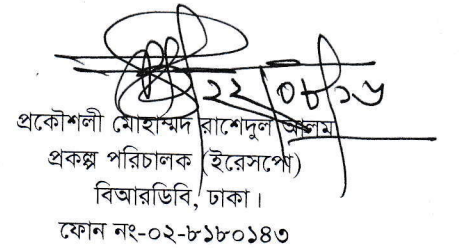 ২২/০৮/১৬
প্রকৌশলী মোহাম্মদ রাশেদুল আলম
প্রকল্প পরিচালক (ইরেসপো)
বিআরডিবি, ঢাকা।
ফোন নং-০২-৮১৮০১৪৩